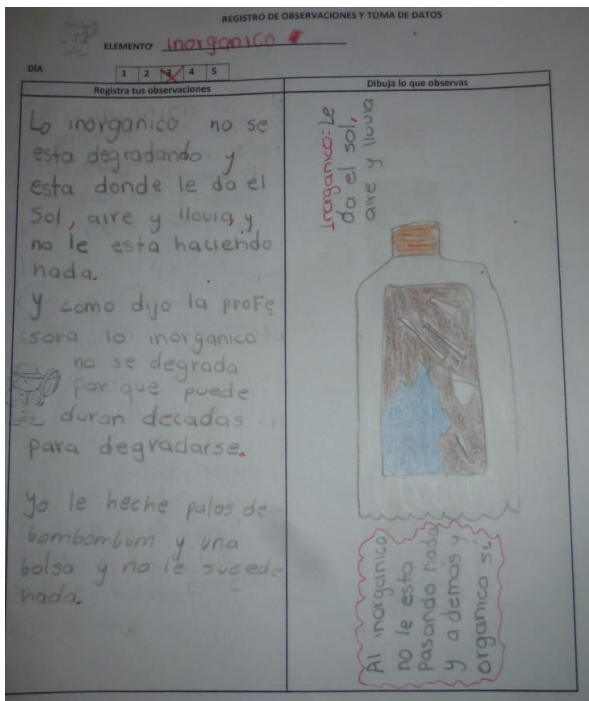 REGISTRO DE OBSERVACIONES Y TOMA DE DATOS
ELEMENTO Inorganico
DÍA
1 2 3 4 5
Registra tus observaciones
Lo inorganico no se
esta degradando y
esta donde le da el
Sol, aire y lluvia, y
no le esta haciendo
nada.
Y como dijo la profe
sora lo inorganico
no se degrada
por que puede
duran decadas
para degradarse.
Yo le heche palos de
bombombum y una
bolsa y no le sucede
nada.
Dibuja lo que observas
Inorganico: Le
da el sol,
aire y lluvia
Al inorganico
no le esta
pasando nada
y a demas y
organico si.